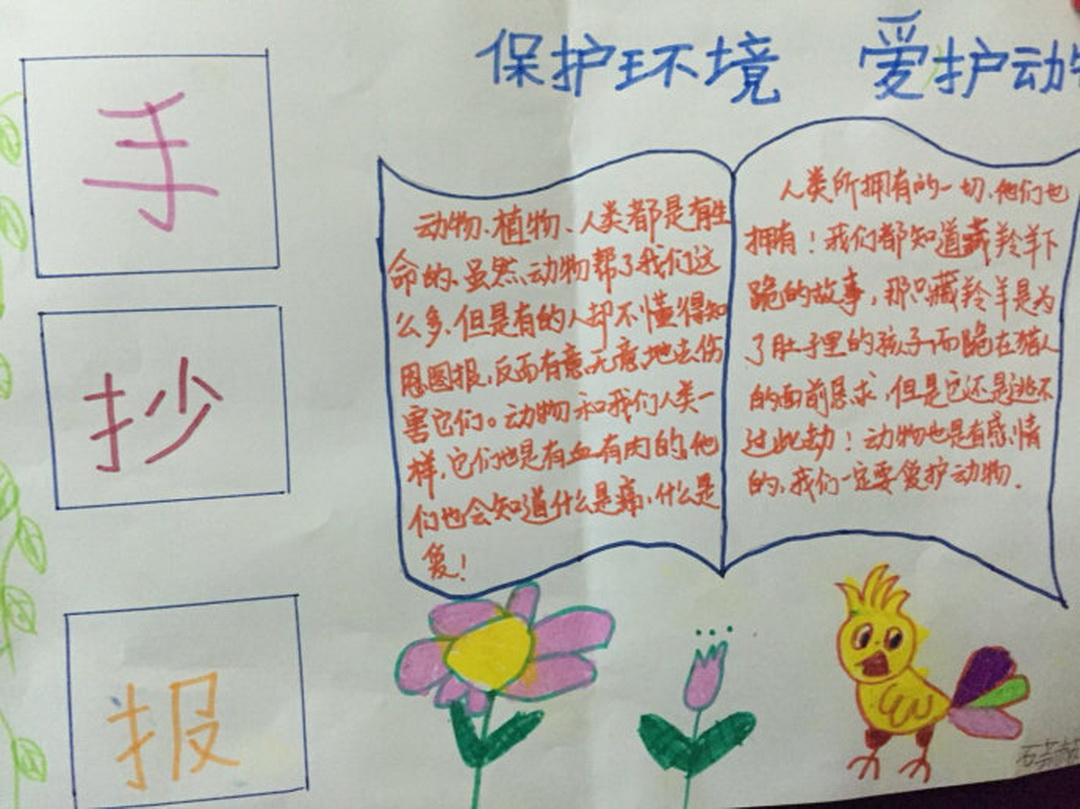 保护环境 爱护动物
手
抄
报
动物、植物、人类都是有生
命的、虽然、动物帮了我们这
么多、但是有的人却不懂得知
恩图报，反而有意无意地去伤
害它们。动物和我们人类一
样，它们也是有血有肉的，他
们也会知道什么是痛，什么是
爱！
人类所拥有的一切、他们也
拥有！我们都知道藏羚羊下
跪的故事，那只藏羚羊是为
了肚子里的孩子而跪在猎人
的面前恳求，但是它还是逃不
过此劫！动物也是有感情
的，我们一定要爱护动物.